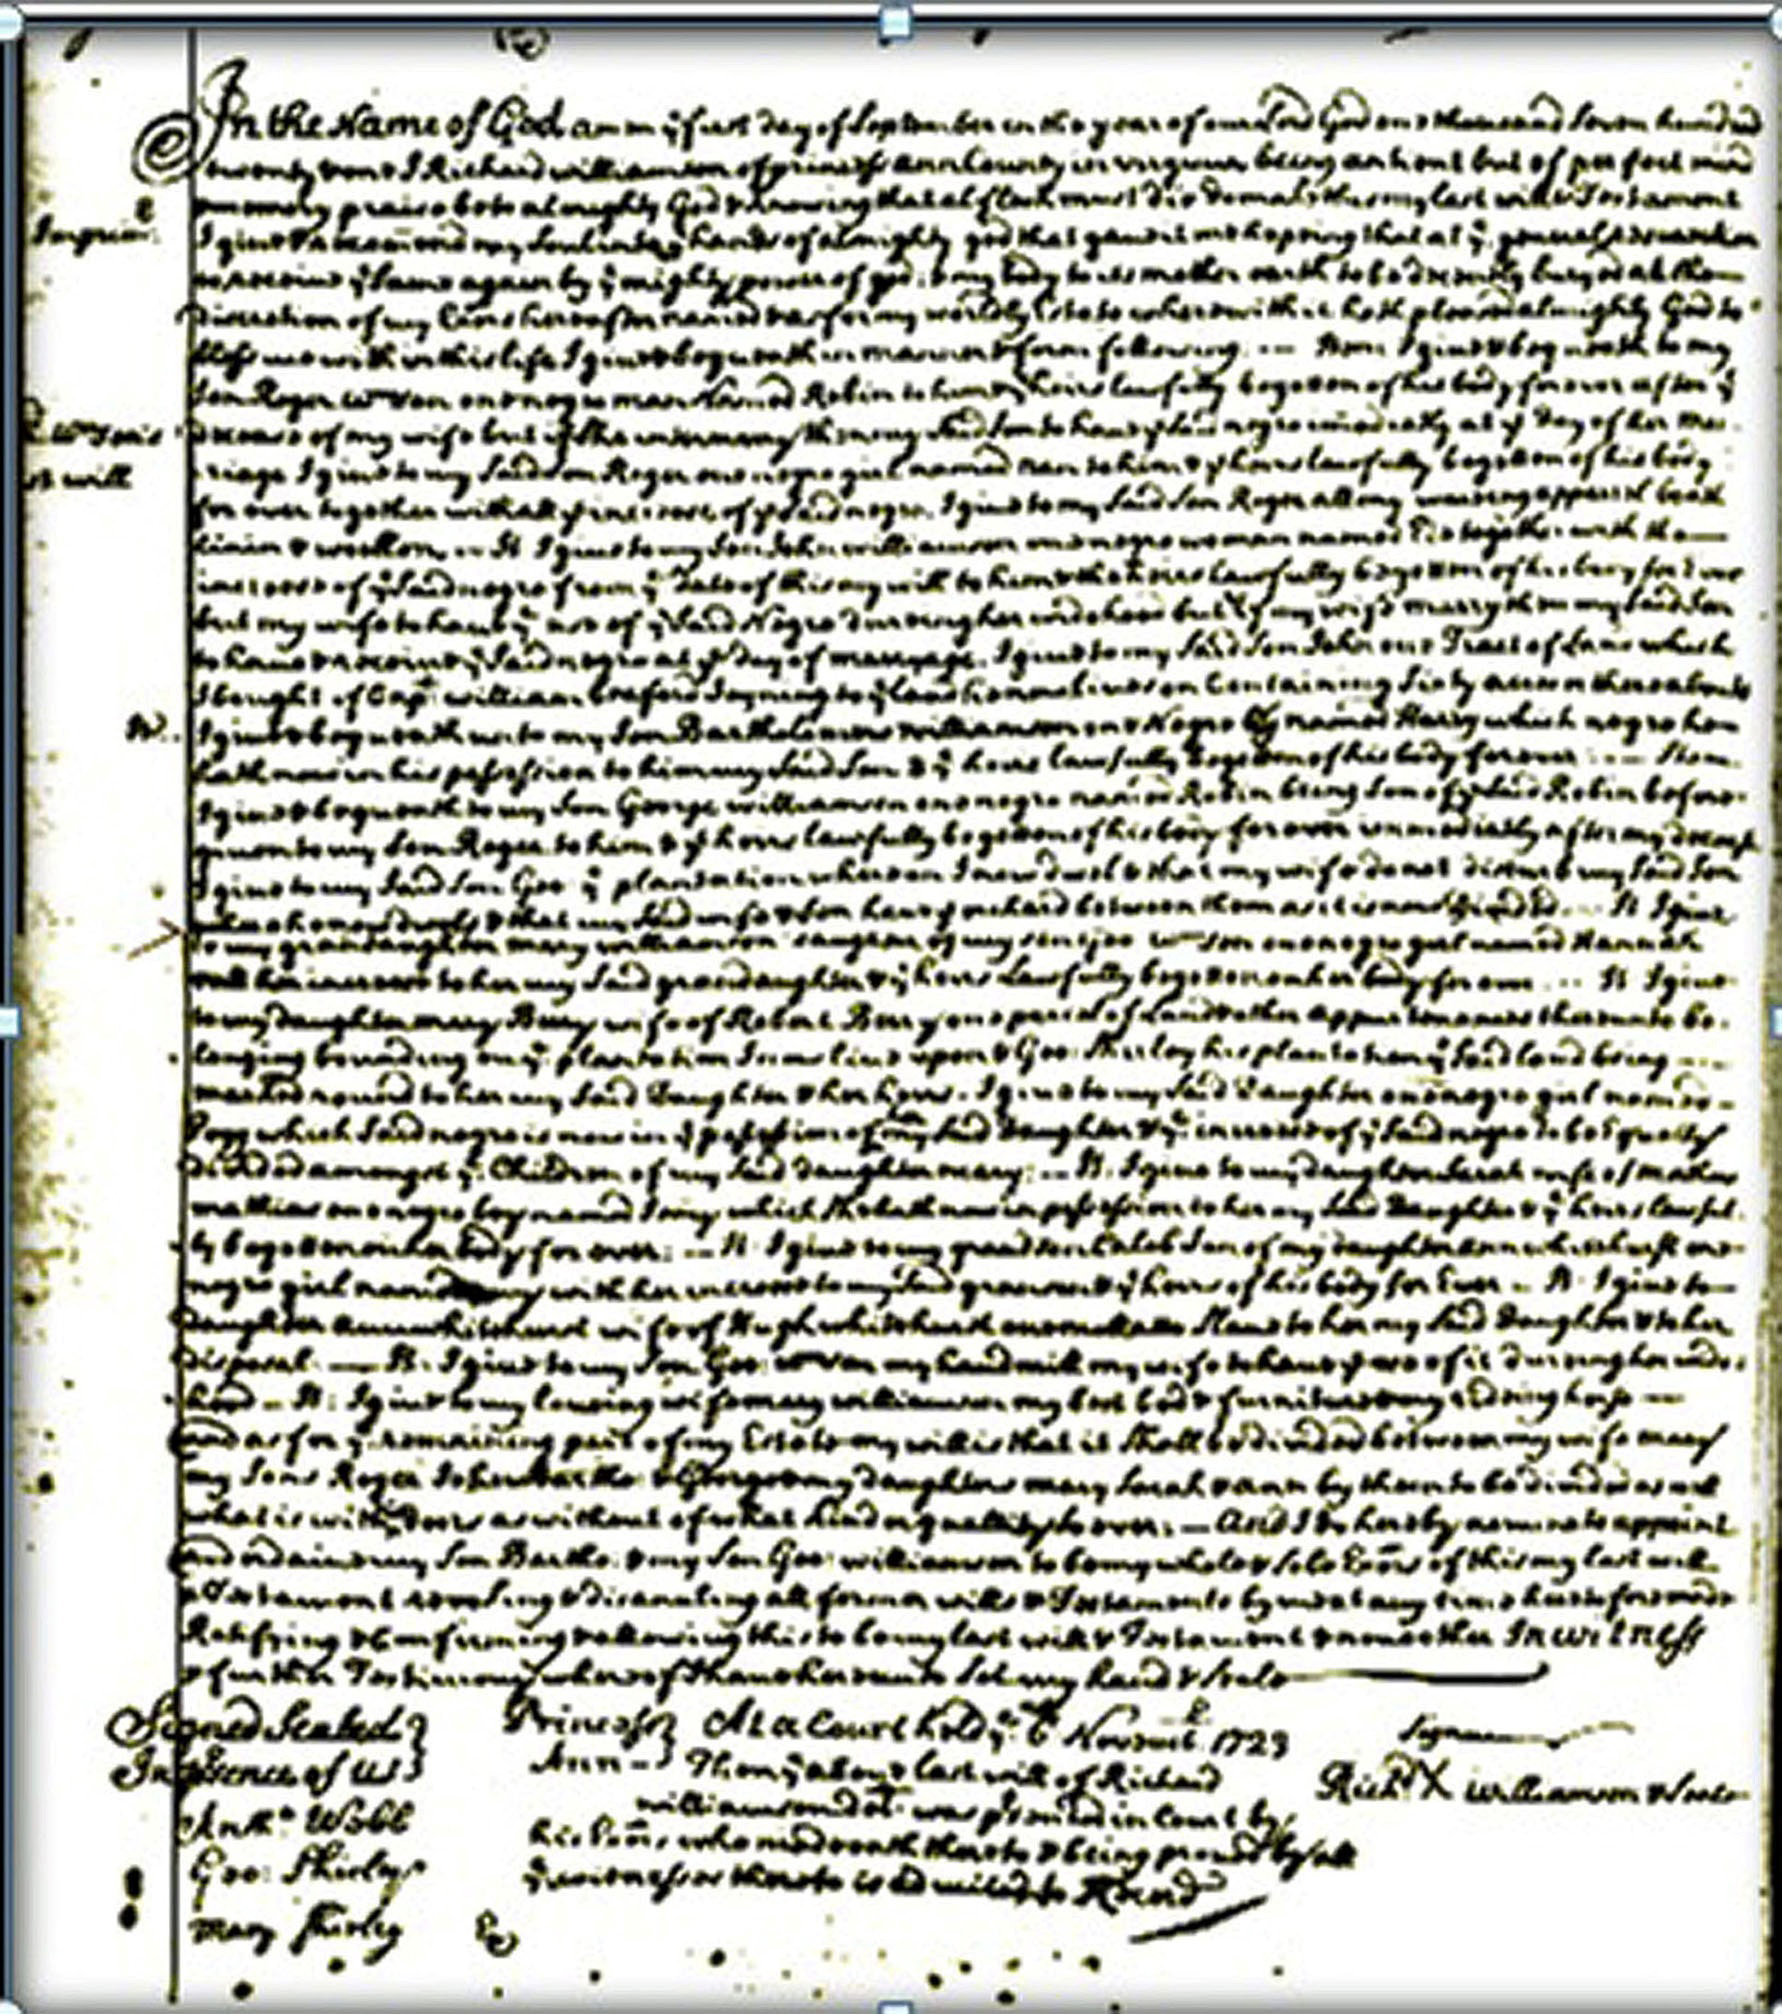 In the Name of God amen ye first day of September in the year of our Lord God one thousand Seven hundred
twenty I Richard williamson of princess ann County in virginia being antient but of perfect mind
memory praise be to almighty God & knowing that all flesh must die do make this my last will & Testament
Imprim:
I give & recommend my Soul into ye hands of almighty god that gave it me hoping that at ye general resurrection
to receive ye Same again by ye mighty power of god, & my body to its mother earth to be decently buryed at the
discretion of my Exrs hereafter named & as for my worldly Estate wherewith it hath pleased almighty God to
bless me with in this life I give & bequeath in manner & form following --- Item I give & bequeath to my
Son Roger Wmson one negro man Named Robin to him & ye heirs lawfully begotten of his body for ever after ye
R Wmson's
decease of my wife but if She marry then my Said Son to have ye Said negro imediatly at ye day of her mar
st will
riage I give to my Said Son Roger one negro girl named Nan to him & ye heirs lawfully begotten of his body
for ever together with all ye increase of ye Said negro. I give to my Said Son Roger all my wearing apparel both
linin & woollen -- It I give to my Son John williamson one negro woman named together with the
increase of ye Said negro from ye date of this my will to him & the heirs lawfully begotten of his body for Ever
but my wife to have ye use of ye Said Negro during her widohood but if my wife marry then my Said Son
to have & receive ye Said negro at ye day of marryage. I give to my Said Son John one Tract of Land which
I bought of Capt william Joyning to ye land he now lives on Containing Sixty acres or thereabouts
It.
I give & bequeath unto my Son Bartholomew williamson one Negro named Harry which negro hee
hath now in his possession to him my Said Son & ye heirs lawfully begotten of his body for ever --- Item
I give & bequeath to my Son George williamson one negro named Robin being Son of ye Said Robin before
given to my Son Roger to him & ye heirs lawfully begotten of his body for ever immediatly after my decease
I give to my Said Son Geo ye plantation whereon I now dwell & that my wife do not disturb my Said Son
where he now dwells & that my Said wife & Son have ye orchard between them as it is now divided -- It I give
to my grandaughter mary williamson daughter of my son Geo Wmson one negro girl named Hannah
her increase to her my Said grandaughter & ye heirs Lawfully begotten on her body for ever --- It I give
to my daughter mary Berry wife of Robert Berry one parcel of Land & other appurtenances thereunto be
longing bounding on ye plantation I now live upon & Geo: Shirley his plantation ye Said land being ---
marked round to her my Said Daughter & her heirs. I give to my Said Daughter one negro girl named
Pegg which Said negro is now in ye possession of my Said Daughter & ye increase of ye Said negro to be Equally
divided amongst ye Children of my Said daughter mary: -- It. I give to my daughter Sarah wife of
mathias one negro boy named which She hath now in possession to her my Said Daughter & ye heirs lawful
ly begotten on her body for ever: -- It I give to my grand Son Caleb Son of my daughter ann whitehurst one
negro girl named with her increase to my Said grandson & ye heirs of his body for Ever -- It I give to
daughter ann whitehurst wife of Hugh whitehurst one Slave to her my Said Daughter & to her
disposal -- It. I give to my Son Geo: Wmson my handmill my wife to have ye use of it during her wido
hood -- It: I give to my loveing wife mary williamson my best bed & furniture & my rideing horse --
and as for ye remaining part of my Estate my will is that it Shall be divided between my wife mary
my Sons Roger John Bartho & George & my daughters mary Sarah & ann by them to be divided as well
what is within doors as without of what kind or quallity so ever: -- And I do hereby nominate appoint
and ordain my Son Bartho: & my Son Geo williamson to be my whole & Sole Exrs of this my last will
& Testament revoking & disanuling all former wills & Testaments by me at any time heretofore made
Ratifying & Confirming & allowing this to be my last will & Testament & none other In witness
& further Testimony whereof I have hereunto Set my hand & Seale
Signed Sealed
In psence of us
Anth: Webb
Geo: Shirley
mary Shirley
Princess Ann
At a Court held ye 6th Novemb: 1723
Then ye above last will of Richard
williamson decd was psented in Court by
his Exrs who made oath thereto & being proved by all
ye witnesses thereto is admitted to Record
Ex
Signum
Richd X williamson & Seale